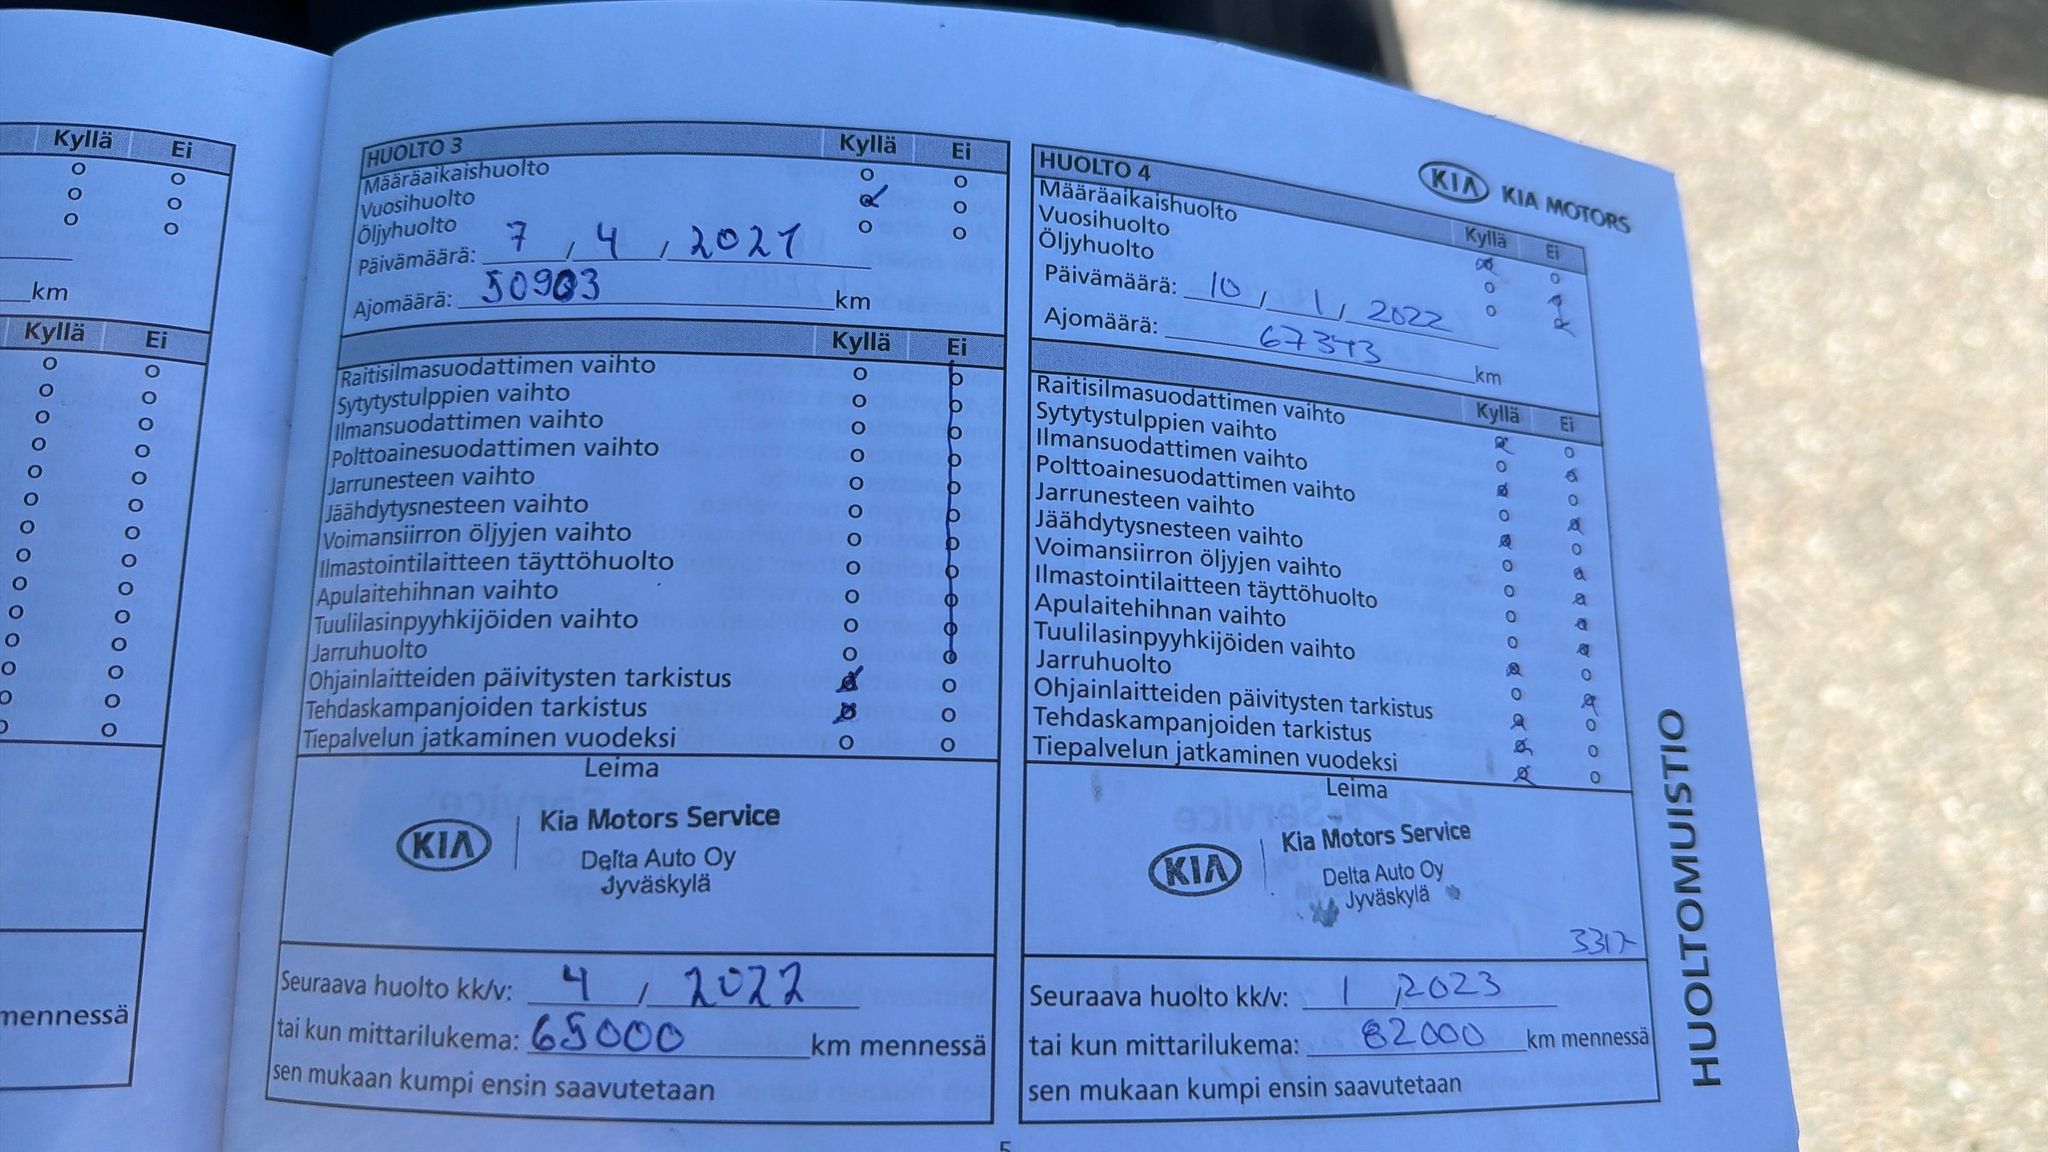 Kyllä Ei
km
Kyllä Ei
mennessä
HUOLTO 3 Kyllä Ei
Määräaikaishuolto
Vuosihuolto
Öljyhuolto
Päivämäärä: 7 / 4 / 2021
Ajomäärä: 50903 km
Kyllä Ei
Raitisilmasuodattimen vaihto
Sytytystulppien vaihto
Ilmansuodattimen vaihto
Polttoainesuodattimen vaihto
Jarrunesteen vaihto
Jäähdytysnesteen vaihto
Voimansiirron öljyjen vaihto
Ilmastointilaitteen täyttöhuolto
Apulaitehihnan vaihto
Tuulilasinpyyhkijöiden vaihto
Jarruhuolto
Ohjainlaitteiden päivitysten tarkistus
Tehdaskampanjoiden tarkistus
Tiepalvelun jatkaminen vuodeksi
Leima
KIA Kia Motors Service
Delta Auto Oy
Jyväskylä
Seuraava huolto kk/v: 4 / 2022
tai kun mittarilukema: 65000 km mennessä
sen mukaan kumpi ensin saavutetaan
5
KIA KIA MOTORS
HUOLTO 4 Kyllä Ei
Määräaikaishuolto
Vuosihuolto
Öljyhuolto
Päivämäärä: 10 / 1 / 2022
Ajomäärä: 67343 km
Kyllä Ei
Raitisilmasuodattimen vaihto
Sytytystulppien vaihto
Ilmansuodattimen vaihto
Polttoainesuodattimen vaihto
Jarrunesteen vaihto
Jäähdytysnesteen vaihto
Voimansiirron öljyjen vaihto
Ilmastointilaitteen täyttöhuolto
Apulaitehihnan vaihto
Tuulilasinpyyhkijöiden vaihto
Jarruhuolto
Ohjainlaitteiden päivitysten tarkistus
Tehdaskampanjoiden tarkistus
Tiepalvelun jatkaminen vuodeksi
Leima
KIA Kia Motors Service
Delta Auto Oy
Jyväskylä
3317
Seuraava huolto kk/v: 1 / 2023
tai kun mittarilukema: 82000 km mennessä
sen mukaan kumpi ensin saavutetaan
HUOLTOMUISTIO